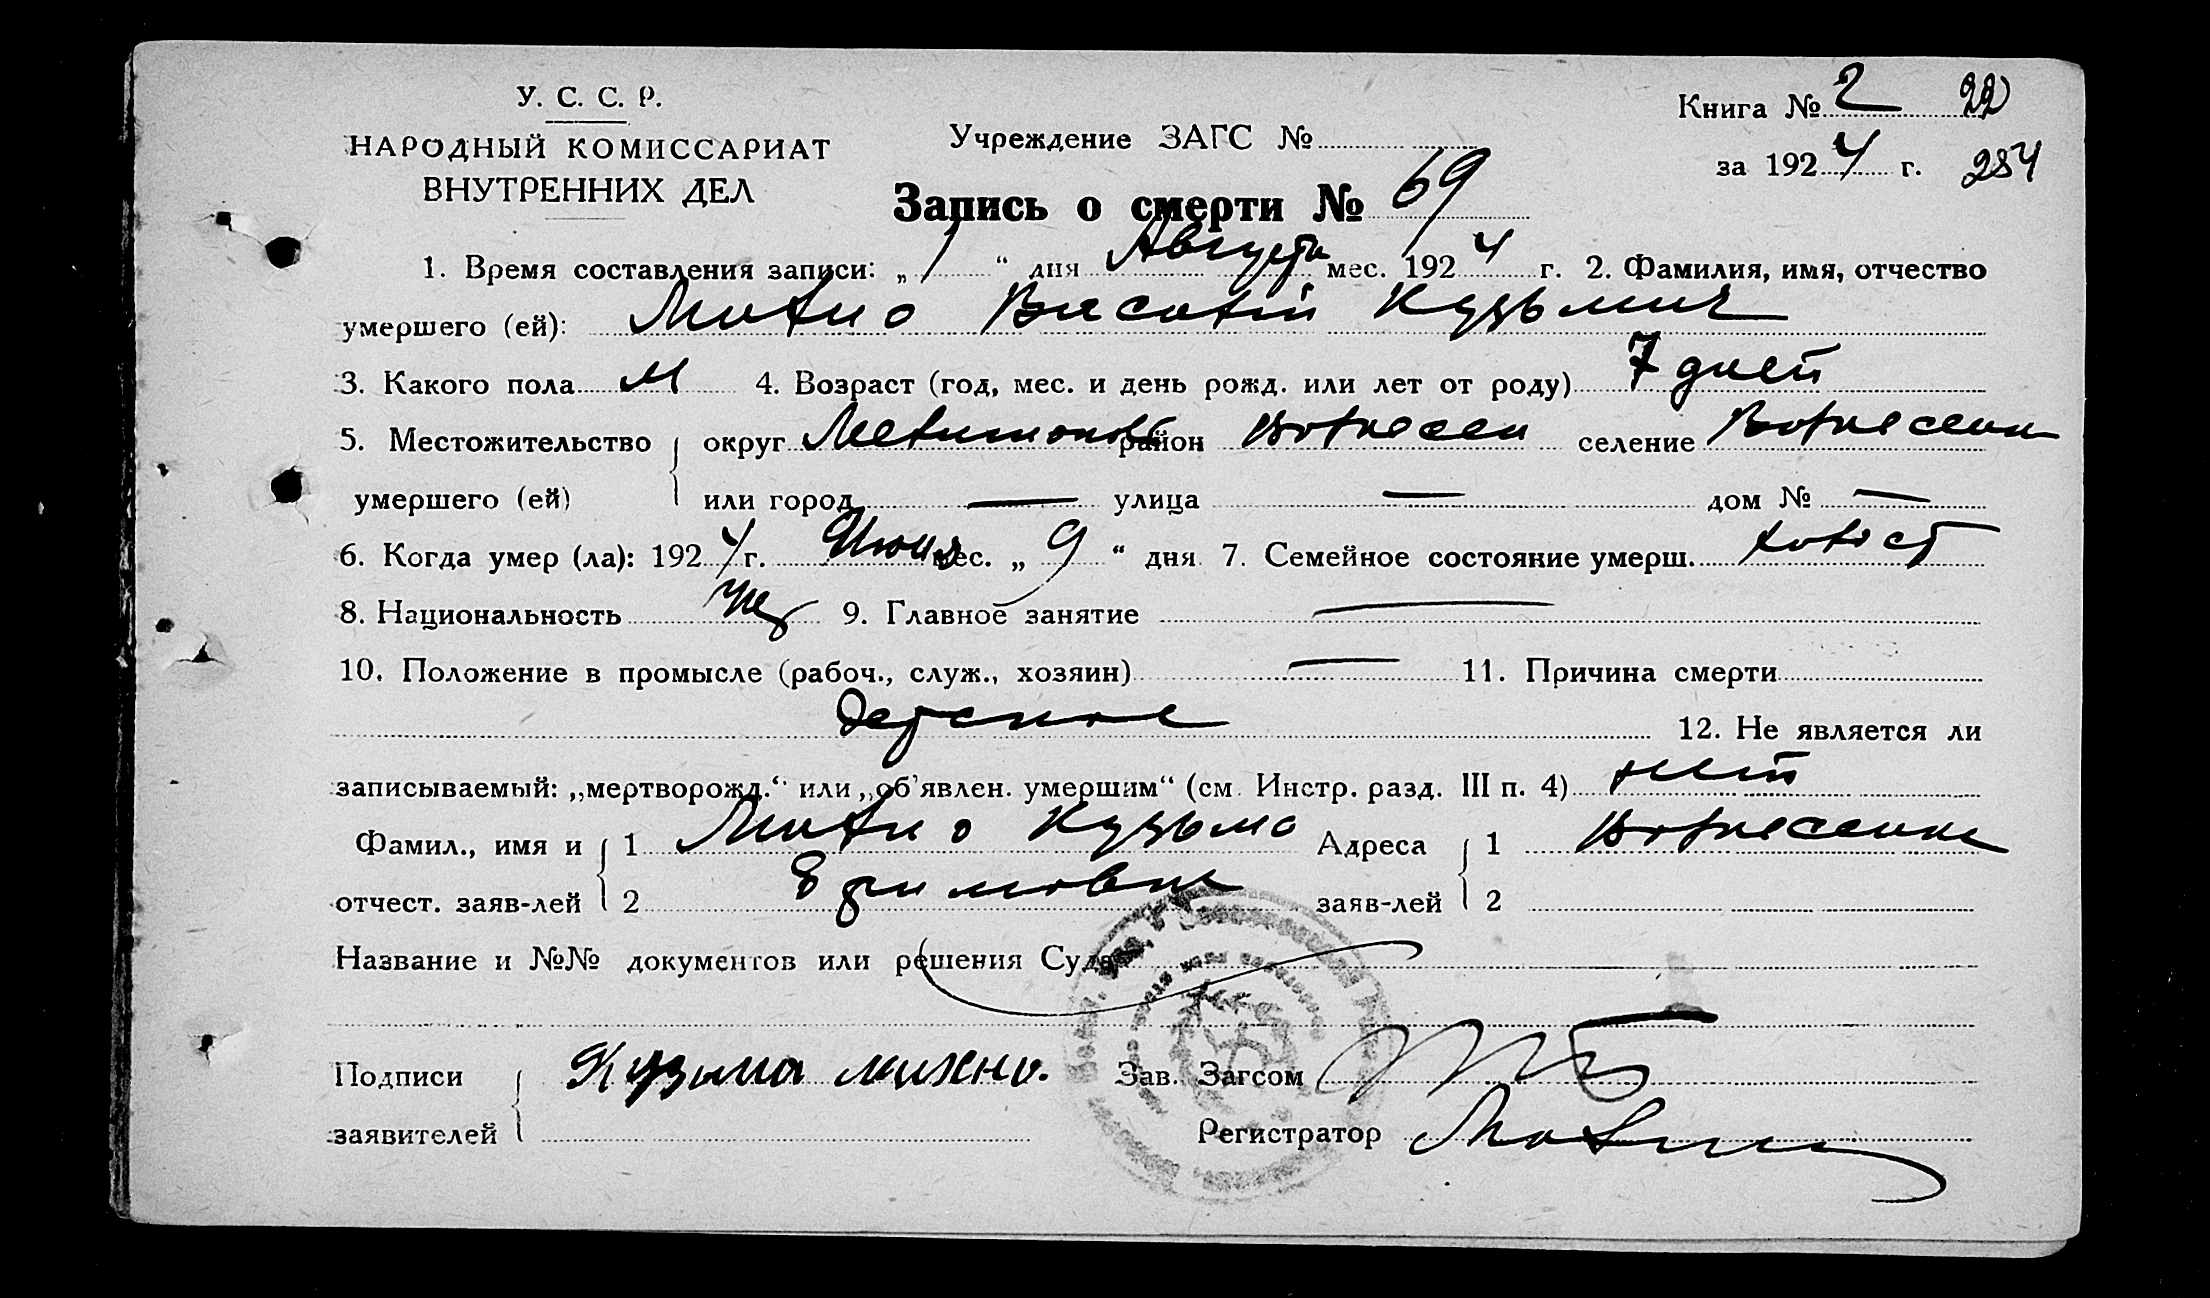 У. С. С. Р.
НАРОДНЫЙ КОМИССАРИАТ
ВНУТРЕННИХ ДЕЛ
Учреждение ЗАГС №
Книга № 2 22
за 1924 г. 284
Запись о смерти № 69
1. Время составления записи: „1“ дня Августа мес. 1924 г. 2. Фамилия, имя, отчество
умершего (ей): Михно Василий Кузьмич
3. Какого пола М 4. Возраст (год, мес. и день рожд. или лет от роду) 7 дней
5. Местожительство округ район Вознесен селение Вознесенка
умершего (ей) или город — улица — дом № —
6. Когда умер (ла): 1924 г. мес. „9“ дня 7. Семейное состояние умерш. холост
8. Национальность 9. Главное занятие —
10. Положение в промысле (рабоч., служ., хозяин) — 11. Причина смерти
детское 12. Не является ли
записываемый: „мертворожд.“ или „об'явлен. умершим“ (см. Инстр. разд. III п. 4) нет
Фамил., имя и 1 Михно Кузьма Адреса 1 Вознесенка
отчест. заяв-лей 2 заяв-лей 2
Название и №№ документов или решения Суда
Подписи Кузьма михно. Зав. Загсом
заявителей Регистратор